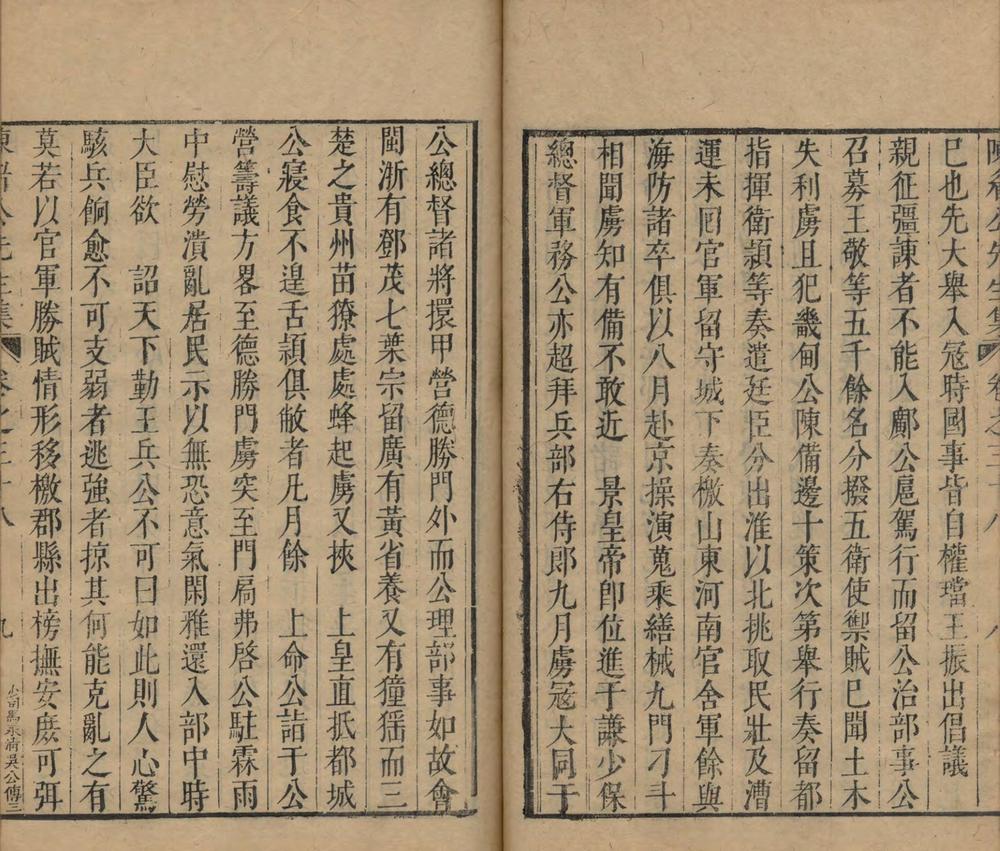 陳眉公先生集 卷之三十八 八
巳也先大舉入冦時國事皆自權璫王振出倡議
親征彊諫者不能入鄺公扈駕行而留公治部事公
召募王敬等五千餘名分撥五衛使禦賊巳聞土木
失利虜且犯畿甸公陳備邊十策次第舉行奏留都
指揮衛頴等奏遣廷臣分出淮以北挑取民壯及漕
運未囘官軍留守城下奏檄山東河南官舍軍餘與
海防諸卒俱以八月赴京操演蒐乘繕械九門刁斗
相聞虜知有備不敢近 景皇帝卽位進于謙少保
總督軍務公亦超拜兵部右侍郎九月虜冦大同于
公總督諸將擐甲 營德勝門外而公理部事如故會
閩浙有鄧茂七葉宗留廣有黃省養又有獞猺而三
楚之貴州苗獠處處蜂起虜又挾 上皇直抵都城
公寢食不遑舌頴俱敝者凡月餘 上命公詣于公
營籌議方畧至德勝門虜突至門扃弗啓公駐霖雨
中慰勞潰亂居民示以無恐意氣閑雅還入部中時
大臣欲 詔天下勤王兵公不可曰如此則人心驚
駭兵餉愈不可支弱者逃強者掠其何能克亂之有
莫若以官軍勝賊情形移檄郡縣出榜撫安庻可弭
陳眉公先生集 卷之三十八 九